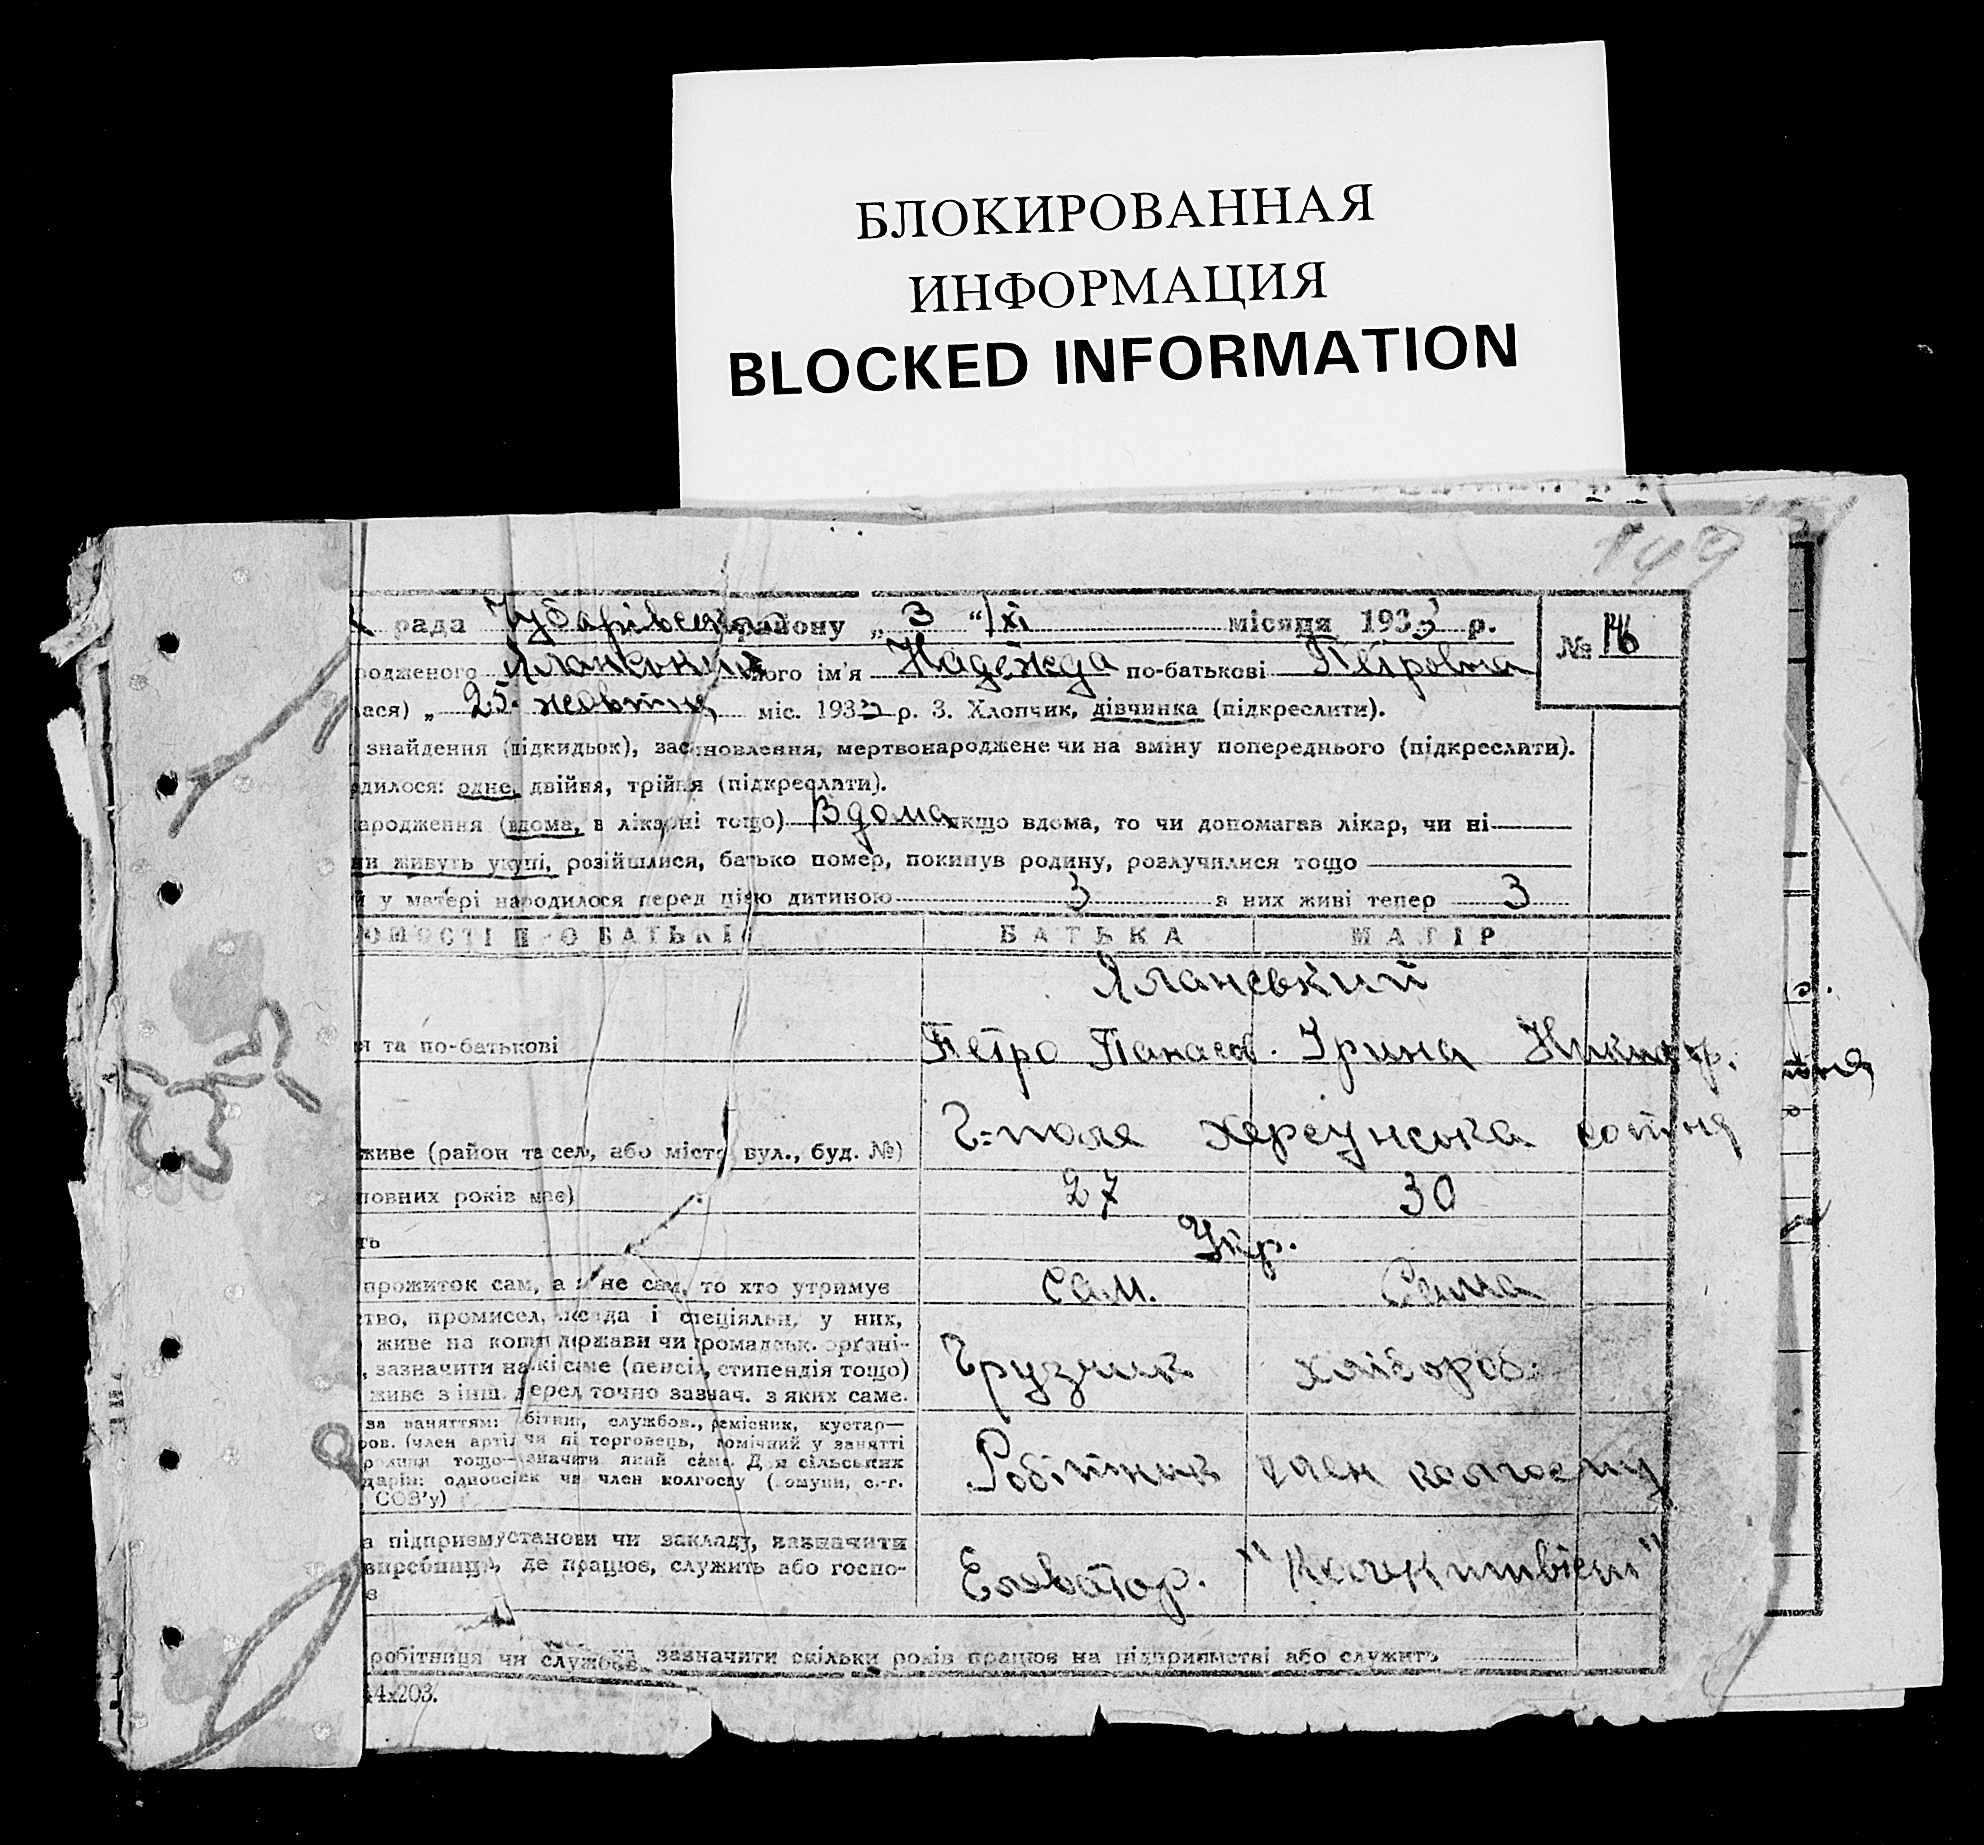 БЛОКИРОВАННАЯ
ИНФОРМАЦИЯ
BLOCKED INFORMATION
149
рада Чубарівська району „ 3 “ XI місяця 1933 р.
№ 146
родженого Яланський ного ім'я Надежда по-батькові Петровна
лася) „ 25. жовтня міс. 1933 р. 3. Хлопчик, дівчинка (підкреслити).
знайдення (підкидьок), засиновлення, мертвонароджене чи на зміну попереднього (підкреслити).
дилося: одне, двійня, трійня (підкреслити).
ародження (вдома, в лікарні тощо) Вдома якщо вдома, то чи допомагав лікар, чи ні
ки живуть укупі, розійшлися, батько помер, покинув родину, розлучилися тощо
й у матері народилося перед цією дитиною 3 з них живі тепер 3
ОМОСТІ ПРО БАТЬКІВ БАТЬКА МАТІР
Яланський
я та по-батькові Петро Панасов. Ірина Никиф р.
живе (район та сел, або місто, вул., буд. №) Г=поле херсунська сотня
повних років має) 27 30
ть Укр.
прожиток сам, а як не сам, то хто утримує Сам. Сама
тво, промисел, посада і спеціяльн. у них,
живе на кошти держави чи громадськ. орґані-
, зазначити на які саме (пенсія, стипендія тощо)
живе з інш. джерел точно зазнач. з яких саме.
Грузчик хлібороб.
за заняттям: робітник, службов., ремісник, кустар—
ров. (член артілі чи ні торговець, помічний у занятті
родини тощо—зазначити який саме. Для сільських
дарів: одноосібник чи член колгоспу (комуни, с.-г.
СОЗ'у)
Робітник член колгоспу
а підприєм установи чи закладу, зазначити
виробниц., де працює, служить або госпо-
в
Елеватор.
робітниця чи службов. зазначити скільки років працює на підприємстві або служить
44х203.